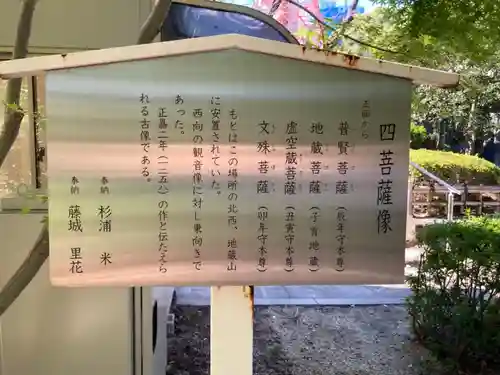 四菩薩像
正面から
普賢菩薩(辰年守本尊)
地蔵菩薩(子育地蔵)
虚空蔵菩薩(丑寅守本尊)
文殊菩薩(卯年守本尊)
もとはこの場所の北西、地蔵山
に安置されていた。
西向の観音像に対し東向きで
あった。
正嘉二年(一二五八)の作と伝えら
れる古像である。
奉納 杉浦 米
奉納 藤城 里花